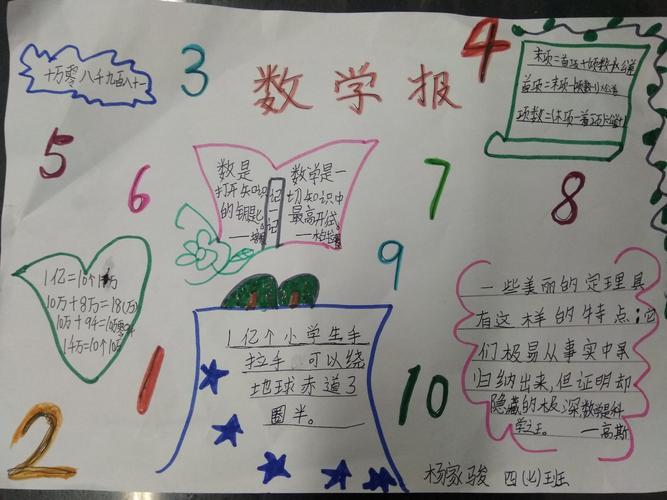 数学报
十万零八千九百八十一
3
4
末项=首项+(项数-1)×公差
首项=末项-(项数-1)×公差
项数=(末项-首项)÷公差+1
5
6
数是
打开知识
的钥匙
记一记
数学是一
切知识中
最高形式
——柏拉图
7
8
9
1亿=10个1千万
10万+8万=18(万)
10万+94=10万零94
1千万=10个100万
1亿个小学生手
拉手,可以绕
地球赤道3
圈半。
一些美丽的定理具
有这样的特点:它
们极易从事实中
归纳出来,但证明却
隐藏的极深。数学是科
学之王。 ——高斯
1
2
10
杨家骏 四(七)班